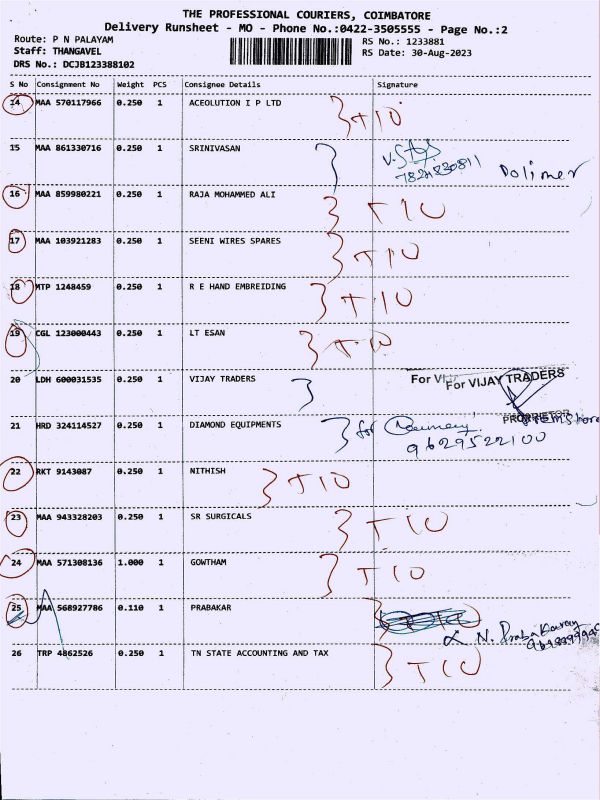 THE PROFESSIONAL COURIERS, COIMBATORE
Delivery Runsheet - MO - Phone No.:0422-3505555 - Page No.:2
Route: P N PALAYAM
RS No.: 1233881
Staff: THANGAVEL
RS Date: 30-Aug-2023
DRS No.: DCJB123388102
S No Consignment No Weight PCS Consignee Details Signature
14 MAA 570117966 0.250 1 ACEOLUTION I P LTD T10
15 MAA 861330716 0.250 1 SRINIVASAN
Dolimer
16 MAA 859980221 0.250 1 RAJA MOHAMMED ALI T10
17 MAA 103921283 0.250 1 SEENI WIRES SPARES T10
18 MTP 1248459 0.250 1 R E HAND EMBREIDING T10
19 CGL 123000443 0.250 1 LT ESAN T10
20 LDH 600031535 0.250 1 VIJAY TRADERS For VIJAY TRADERS
PROPRIETOR
21 HRD 324114527 0.250 1 DIAMOND EQUIPMENTS for
9629522100
22 RKT 9143087 0.250 1 NITHISH T10
23 MAA 943328203 0.250 1 SR SURGICALS T10
24 MAA 571308136 1.000 1 GOWTHAM T10
25 MAA 568927786 0.110 1 PRABAKAR
N. Prabakaran
26 TRP 4862526 0.250 1 TN STATE ACCOUNTING AND TAX T10